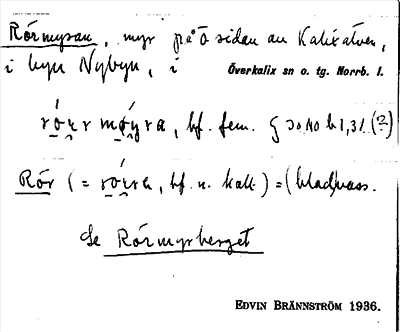 Rörmyran, myr på ö sidan av Kalixälven,
i byn Nybyn, i Överkalix sn o. tg. Norrb. l.
bf. fem. §
Rör (= bf. n. koll.) = (blad)vass.
Se Rörmyrberget
EDVIN BRÄNNSTRÖM 1936.